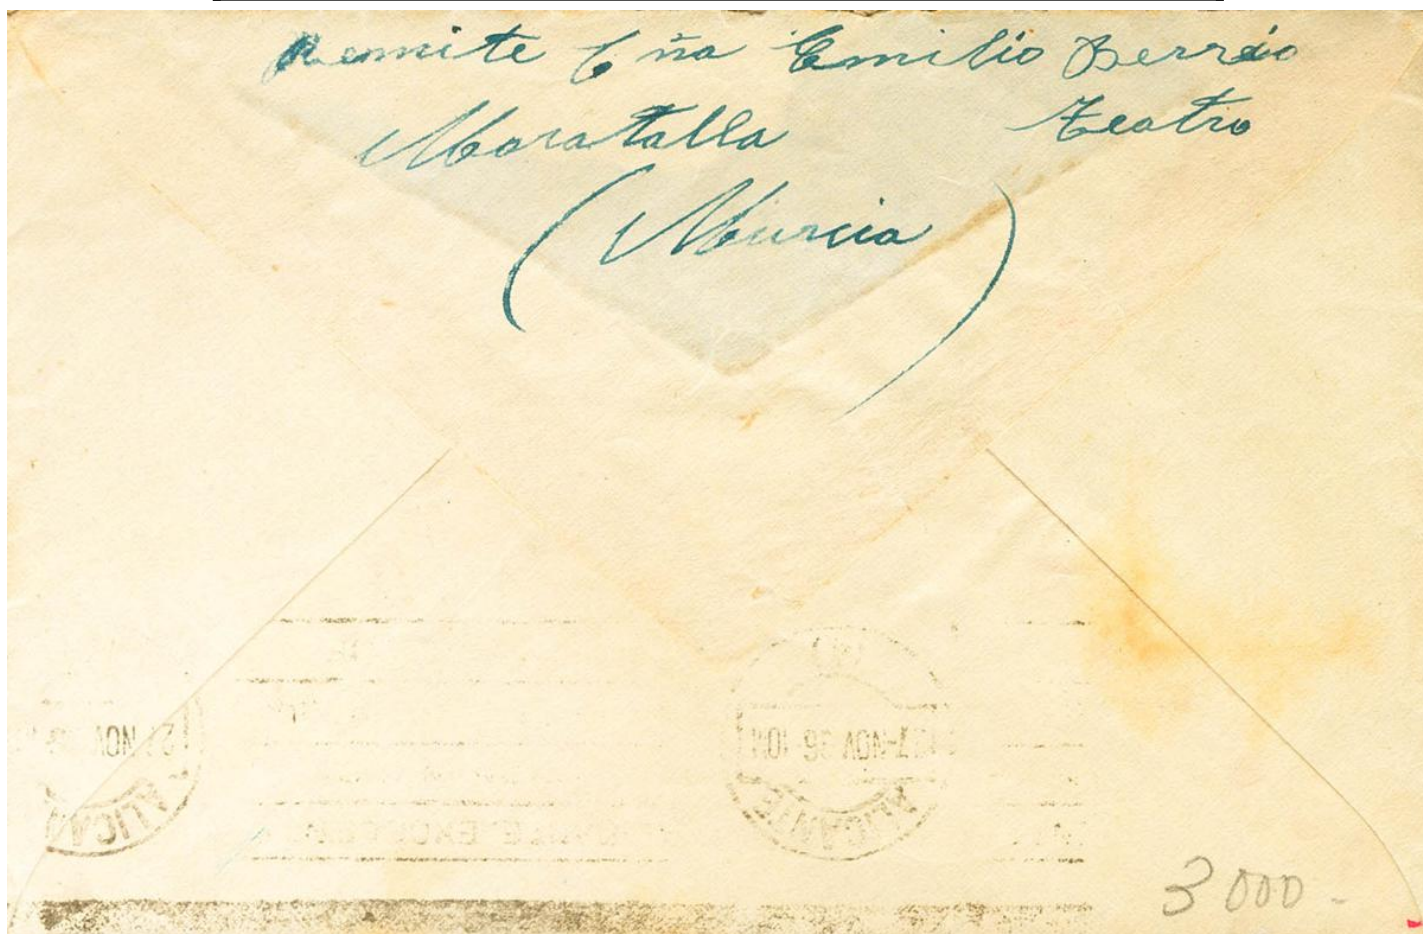 Remite Cñia Emilio Berrio
Moratalla Teatro
(Murcia)
27-NOV 36-10M
NOV
ALICANTE
3000-